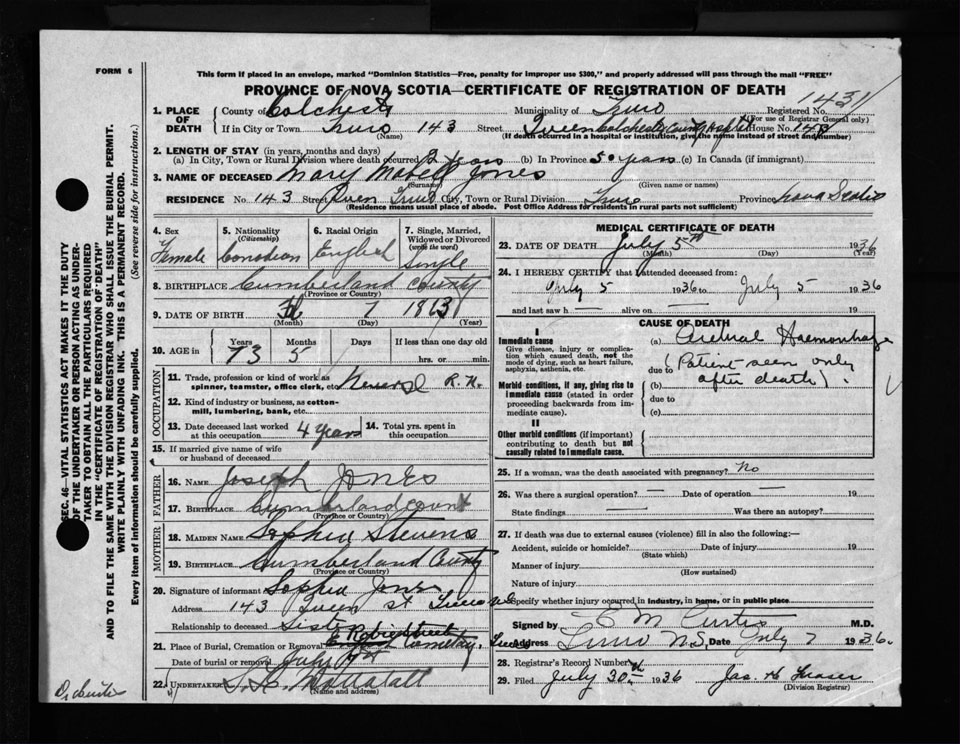 FORM 6
This form if placed in an envelope, marked "Dominion Statistics—Free, penalty for improper use $300," and properly addressed will pass through the mail "FREE"
PROVINCE OF NOVA SCOTIA—CERTIFICATE OF REGISTRATION OF DEATH
1. PLACE OF DEATH County of Colchester Municipality of Truro Registered No. 431
(For use of Registrar General only)
If in City or Town Truro 143 Street Queen Colchester County Hospital House No. 143
(Name) (If death occurred in a hospital or institution, give the name instead of street and number)
2. LENGTH OF STAY (in years, months and days)
(a) In City, Town or Rural Division where death occurred 2 years (b) In Province 50 years (c) In Canada (if immigrant)
3. NAME OF DECEASED Mary Mabell Jones
(Surname) (Given name or names)
RESIDENCE No. 143 Street Queen Truro City, Town or Rural Division Truro Province Nova Scotia
(Residence means usual place of abode. Post Office Address for residents in rural parts not sufficient)
4. Sex 5. Nationality (Citizenship) 6. Racial Origin 7. Single, Married, Widowed or Divorced (write the word)
Female Canadian English Single
8. BIRTHPLACE Cumberland County
(Province or Country)
9. DATE OF BIRTH 7 1863
(Month) (Day) (Year)
10. AGE in Years Months Days If less than one day old
73 5 hrs. or min.
OCCUPATION
11. Trade, profession or kind of work as spinner, teamster, office clerk, etc. R.N.
12. Kind of industry or business, as cotton-mill, lumbering, bank, etc.
13. Date deceased last worked at this occupation 4 years 14. Total yrs. spent in this occupation
15. If married give name of wife or husband of deceased
FATHER
16. NAME Joseph Jones
17. BIRTHPLACE Cumberland County
(Province or Country)
MOTHER
18. MAIDEN NAME Sophia Stevens
19. BIRTHPLACE Cumberland County
(Province or Country)
20. Signature of informant Sophia Jones
Address 143 Queen St Truro NS
Relationship to deceased Sister
21. Place of Burial, Cremation or Removal Robie Street Cemetery, Truro
Date of burial or removal July 7th
22. UNDERTAKER
(Name and address)
MEDICAL CERTIFICATE OF DEATH
23. DATE OF DEATH July 5th 1936
(Month) (Day) (Year)
24. I HEREBY CERTIFY that I attended deceased from:
July 5 1936 to July 5 1936
and last saw h alive on 19
CAUSE OF DEATH
I
Immediate cause
Give disease, injury or complication which caused death, not the mode of dying, such as heart failure, asphyxia, asthenia, etc.
Morbid conditions, if any, giving rise to immediate cause (stated in order proceeding backwards from immediate cause).
II
Other morbid conditions (if important) contributing to death but not causally related to immediate cause.
(a) Cerebral Haemorrhage
due to (Patient seen only
(b) after death).
due to
(c)
25. If a woman, was the death associated with pregnancy? No
26. Was there a surgical operation? — Date of operation — 19
State findings — Was there an autopsy?
27. If death was due to external causes (violence) fill in also the following:—
Accident, suicide or homicide? Date of injury 19
(State which)
Manner of injury
(How sustained)
Nature of injury
Specify whether injury occurred in industry, in home, or in public place
Signed by E M Curtis M.D.
Address Truro N.S. Date July 7 1936.
28. Registrar's Record Number
29. Filed July 30th 1936 Jas. H Fraser
(Division Registrar)
SEC. 46—VITAL STATISTICS ACT MAKES IT THE DUTY
OF THE UNDERTAKER OR PERSON ACTING AS UNDER-
TAKER TO OBTAIN ALL THE PARTICULARS REQUIRED
IN THE "CERTIFICATE OF REGISTRATION OF DEATH"
AND TO FILE THE SAME WITH THE DIVISION REGISTRAR WHO SHALL ISSUE THE BURIAL PERMIT.
WRITE PLAINLY WITH UNFADING INK. THIS IS A PERMANENT RECORD.
Every item of information should be carefully supplied. (See reverse side for instructions.)